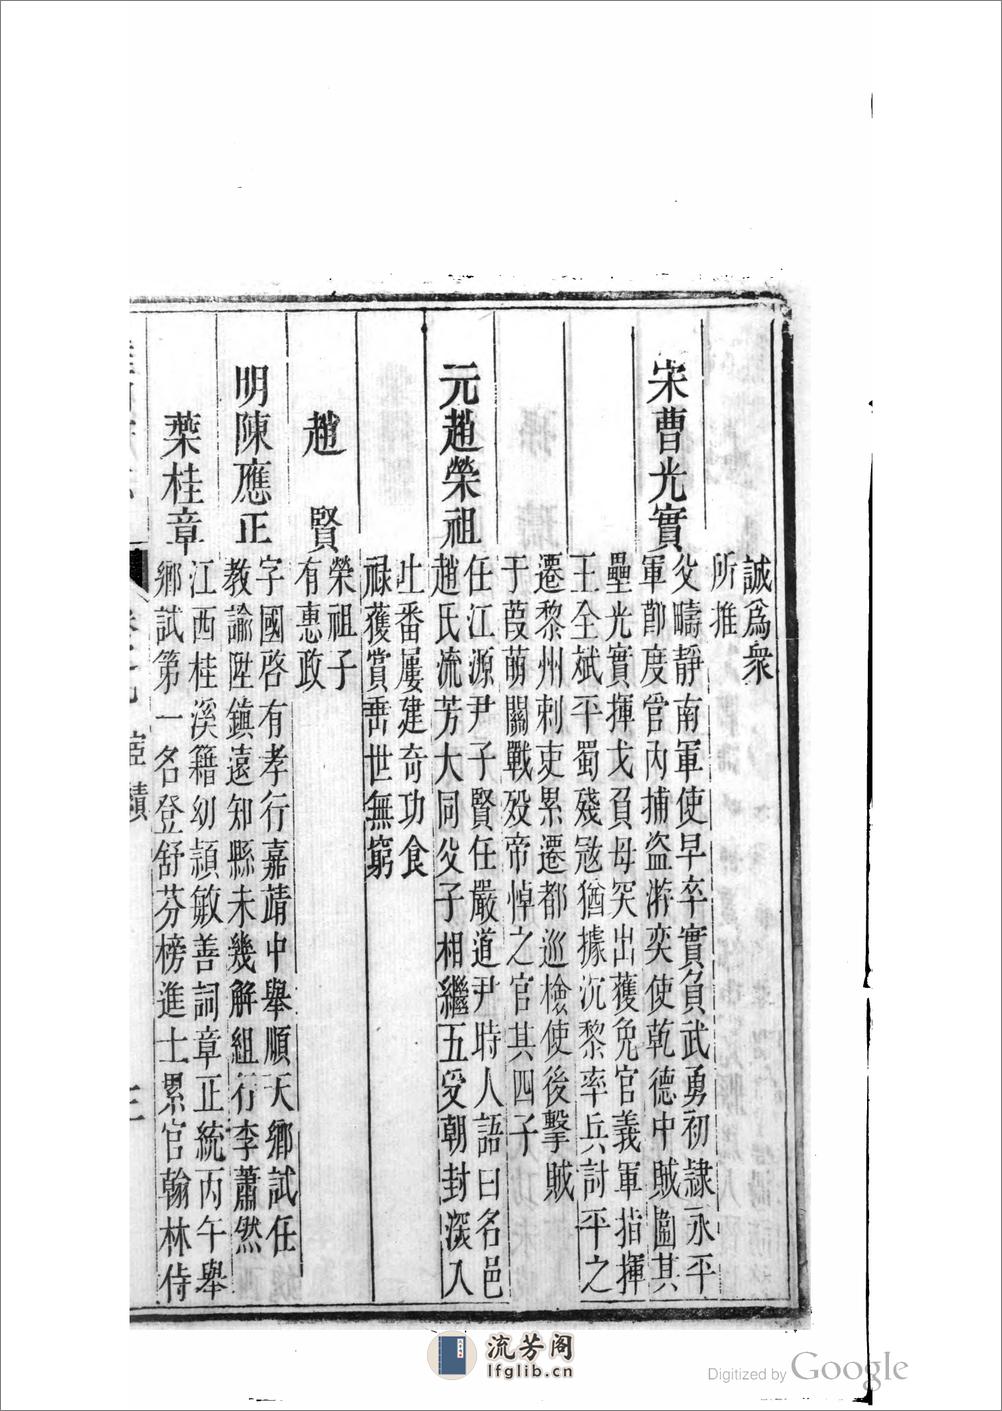 誠爲衆
所推
宋曹光實
父疇靜南軍使早卒實負武勇初隷永平
軍節度管內捕盜游奕使乾德中賊圖其
壘光實揮戈負母突出獲免官義軍指揮
王全斌平蜀殘冦猶據沉黎率兵討平之
遷黎州刺吏累遷都巡檢使後擊賊
于葭萌關戰殁帝悼之官其四子
元趙榮祖
任江源尹子賢任嚴道尹時人語曰名邑
趙氏流芳大同父子相繼五受朝封深入
吐番屢建奇功食
祿獲賞畨世無窮
趙賢
榮祖子
有惠政
明陳應正
字國啓有孝行嘉靖中舉順天鄉試任
教諭陞鎮遠知縣未幾解組行李蕭然
葉桂章
江西桂溪籍幼穎敏善詞章正統丙午舉
鄉試第一名登舒芬榜進士累官翰林侍
流芳阁
lfglib.cn
Digitized by Google